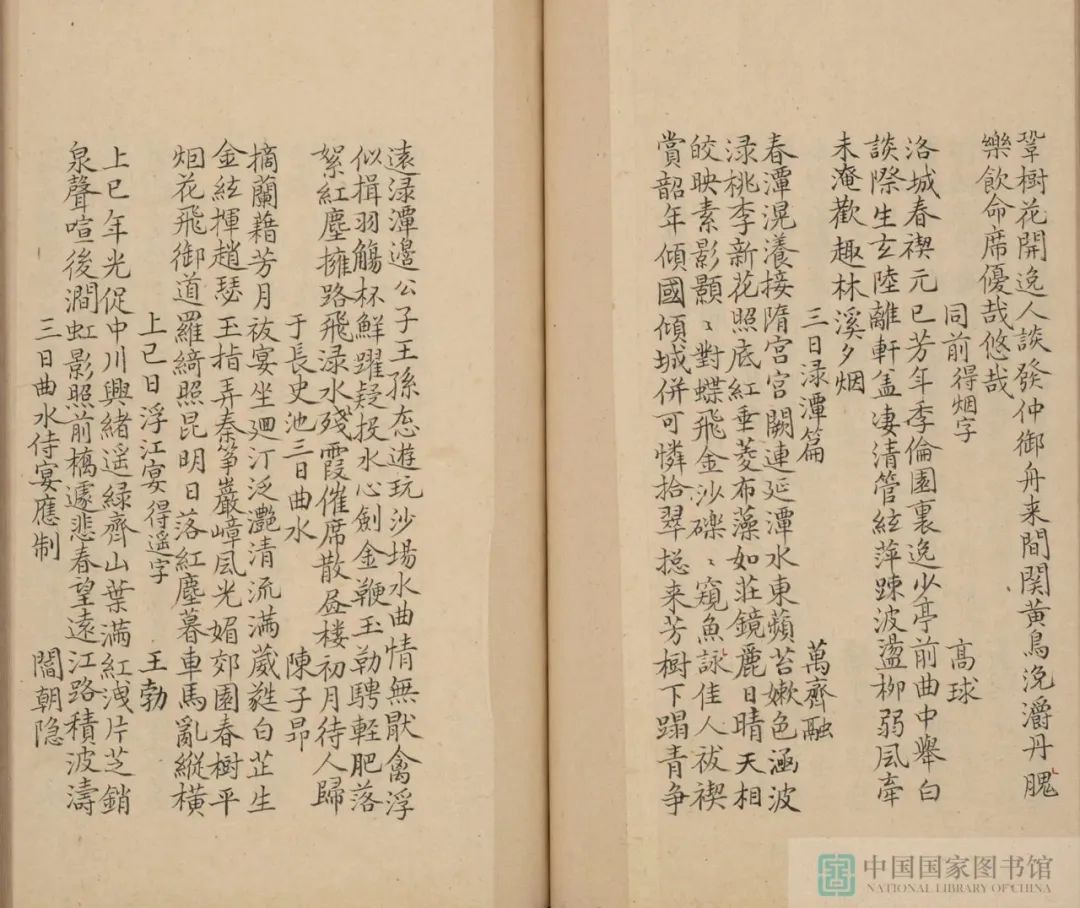 鞏樹花開逸人談發仲御舟来間関黄鳥浼灂丹腮
樂飲命席優哉悠哉
同前得烟字 高球
洛城春禊元巳芳年季倫園裏逸少亭前曲中舉白
談際生玄陸離軒盖凄清管絃萍踈波盪柳弱風牽
未淹歡趣林溪夕烟
三日渌潭篇 萬齊融
春潭滉瀁接隋宫宫闕連延潭水東蘋苔嫰色涵波
渌桃李新花照底紅垂菱布藻如莊鏡麗日晴天相
皎映素影顯〻對蝶飛金沙磔〻窺魚詠佳人袚禊
賞韶年傾國傾城併可憐拾翠摠来芳樹下蹋青争
遠渌潭邊公子王孫恣遊玩沙場水曲情無厭禽浮
似揖羽觴杯鮮躍疑投水心劍金鞭玉勒騁軽肥落
絮紅塵擁路飛渌水殘霞催席散昼楼初月待人歸
于長史池三日曲水 陳子昂
摘蘭藉芳月祓宴坐廻汀泛灔清流滿葳蕤白芷生
金絃揮趙瑟玉指弄秦筝巖嶂風光媚郊園春樹平
烟花飛御道羅綺照昆明日落紅塵暮車馬亂縱横
上巳日浮江宴得遥字 王勃
上巳年光促中川興緒遥緑齊山葉满紅洩片芝銷
泉聲喧後澗虹影照前橋遽悲春望遠江路積波濤
三日曲水侍宴應制 閻朝隐
中国国家图书馆
NATIONAL LIBRARY OF CHINA